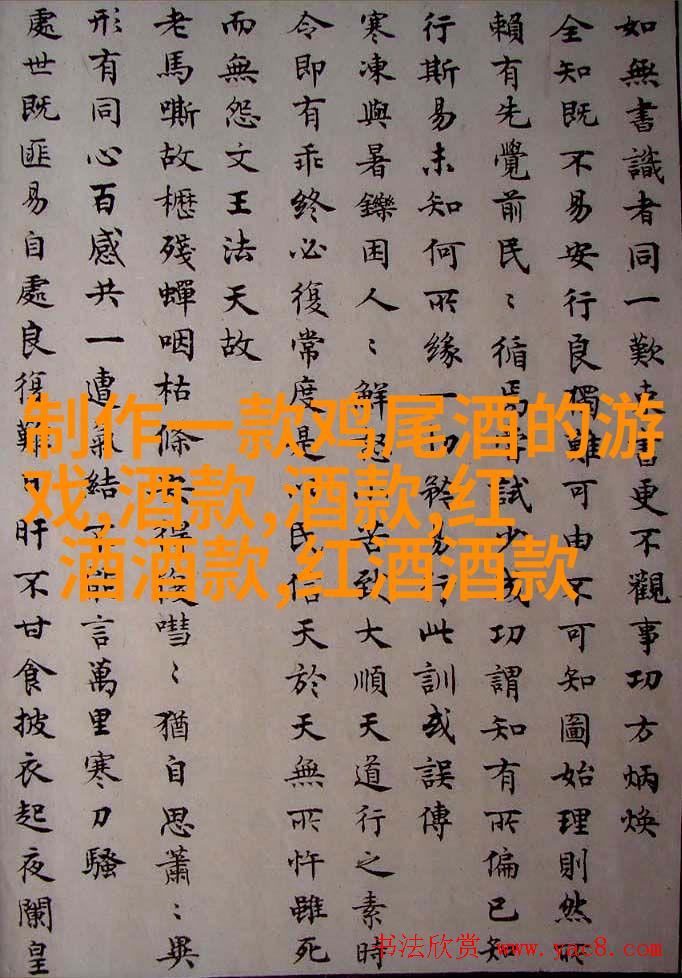 制作一款鸡尾酒的游
戏,酒款,酒款,红
酒酒款,红酒酒款
如無書識者同一歎書更不觀事功方炳煥
全知既不易安行良獨難可由不可知圖始理則然所
賴有先覺前民〻循焉試少或功謂知有所偏已知
行斯易未知何所緣一切行此訓或誤傳
寒凍與暑鑠困人〻鮮怨苦到大順天道行之素時
令即有乖終必復常度是民信天於天無所忤雖死
而無怨文王法天故
老馬嘶故櫪殘蟬咽枯條嘒〻猶自思蕭〻異
形有同心百感共一遭氣結不能言萬里寒刀騷
處世既匪易自處良復難旰不甘食披衣起夜闌皇
书法欣赏 www.yac8.com